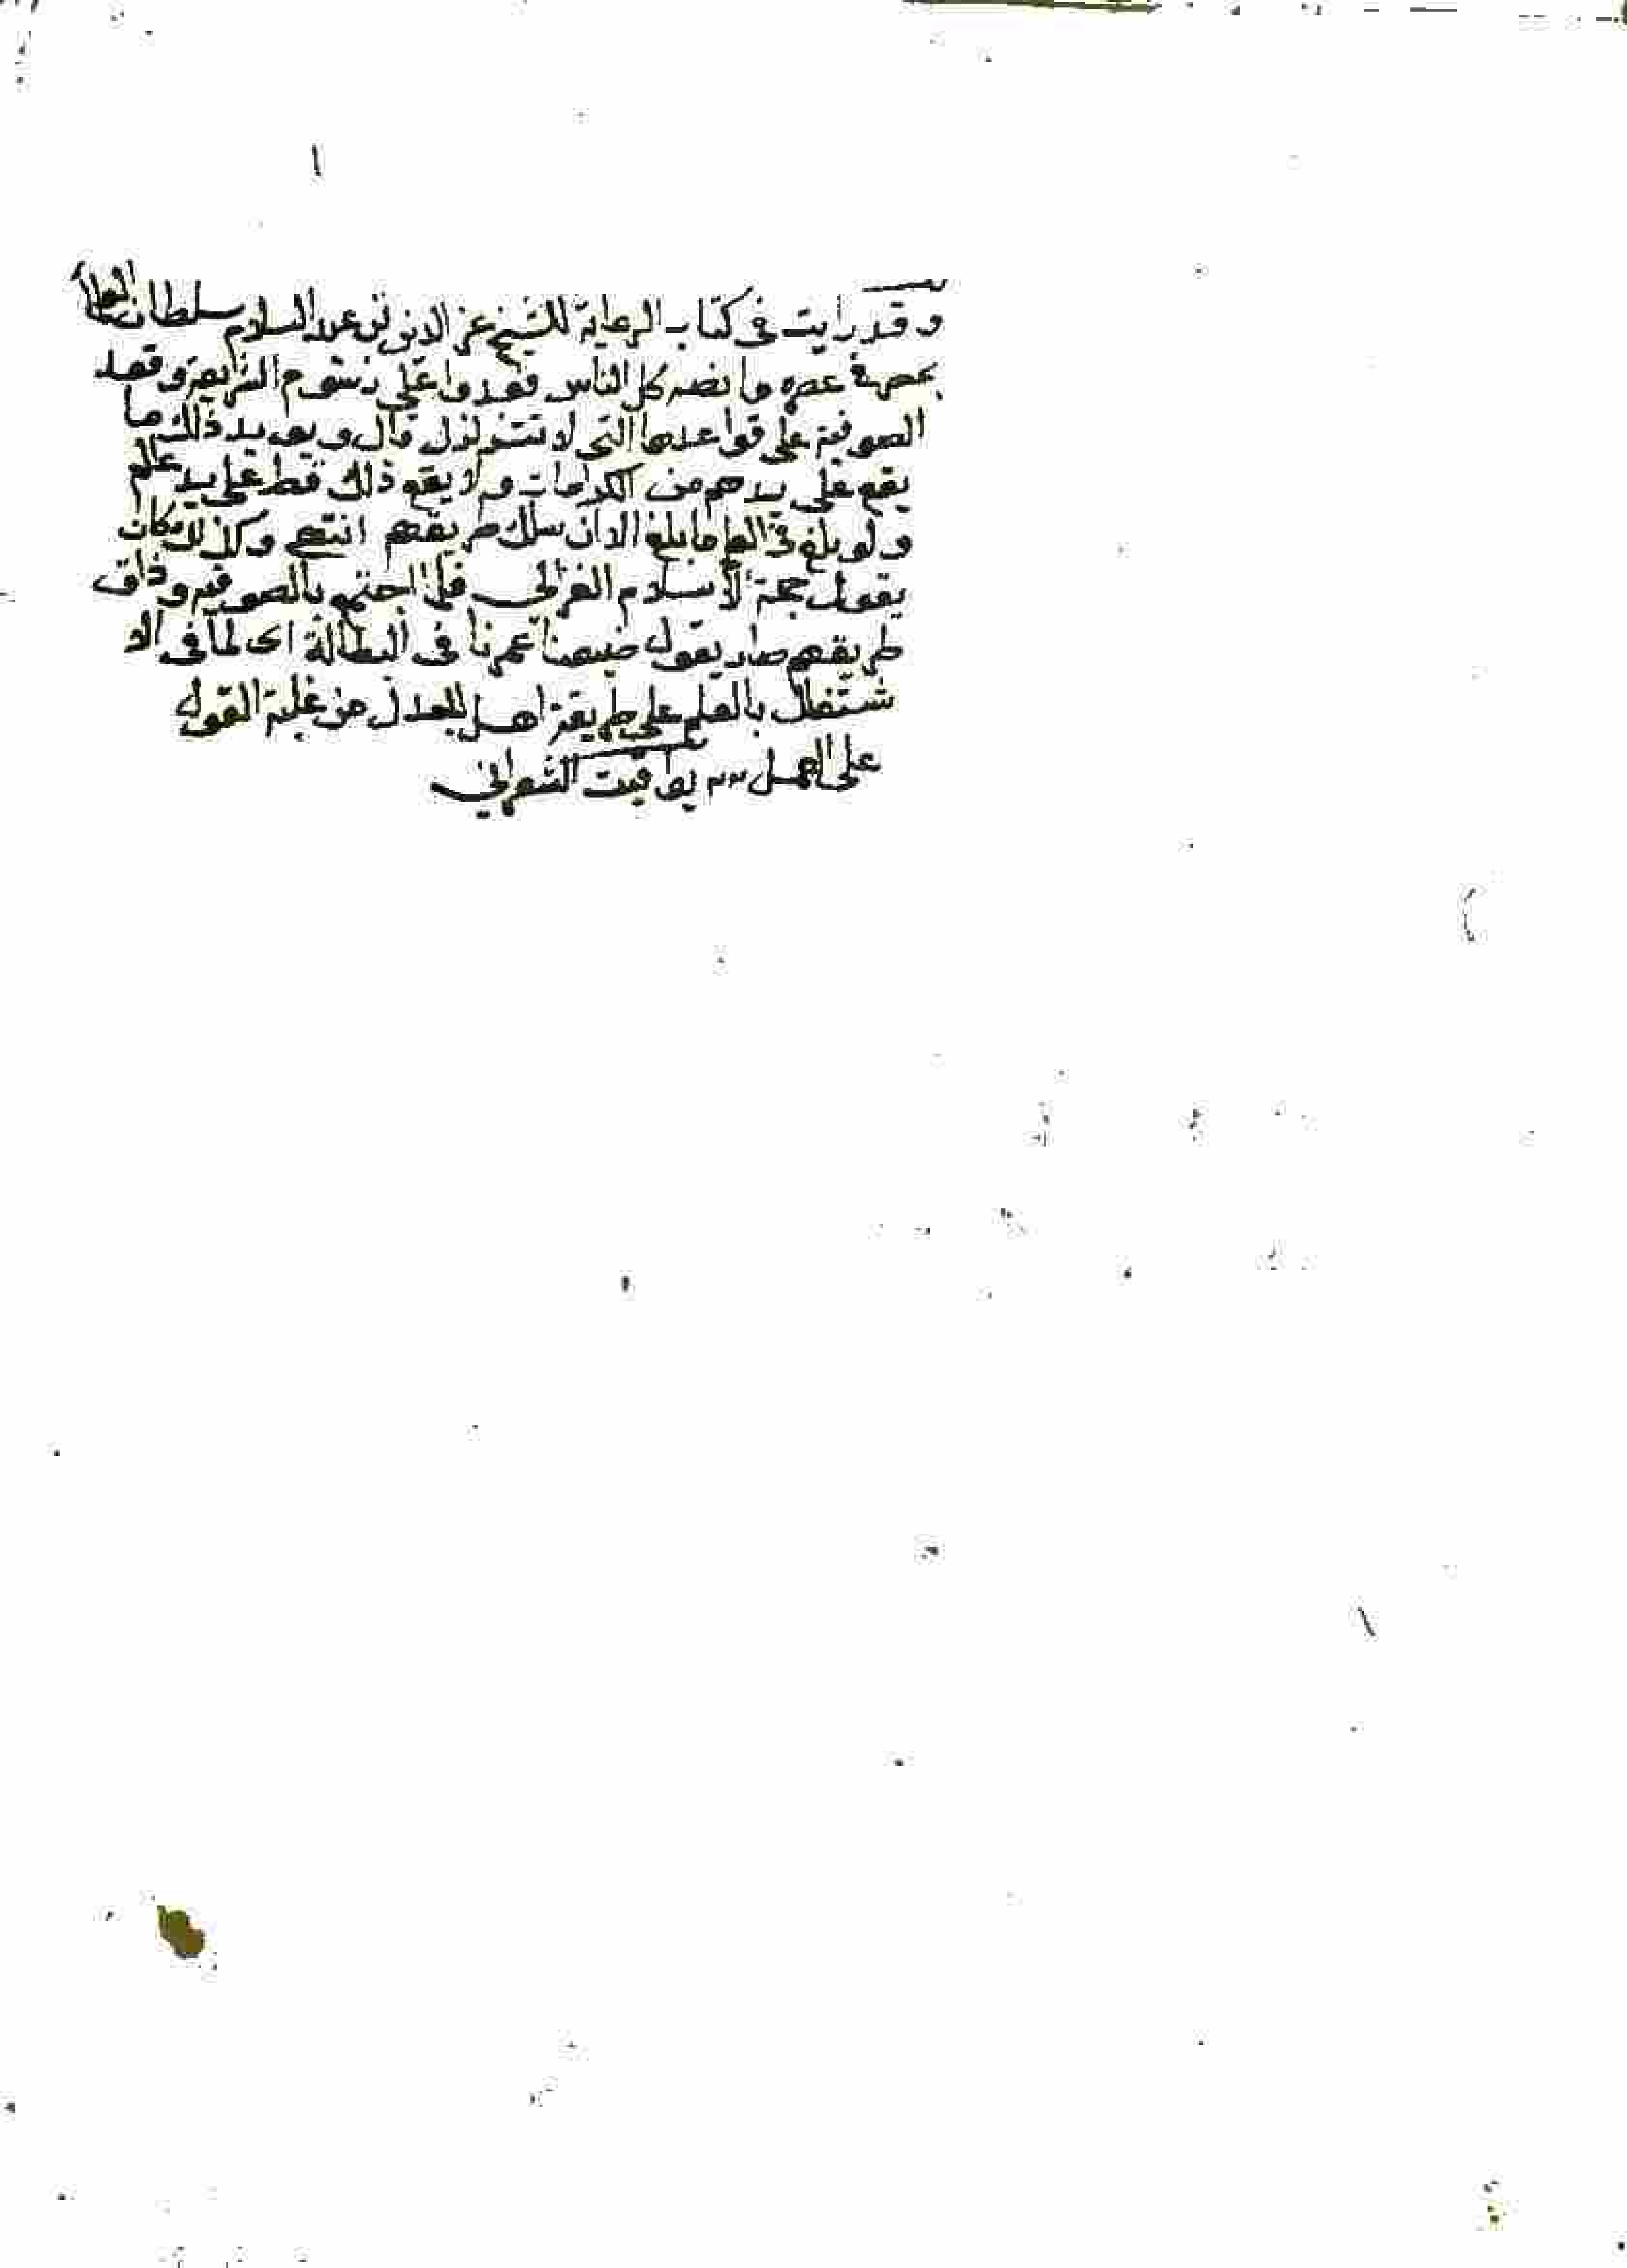 وقد رايت في كتاب الرعاية للشيخ عز الدين بن عبد السلام سلطان العلما
عصره ما نصه كل الناس قعدوا على رسوم الشريعة وقعد
الصوفية على قواعدها التي لا تتزلزل قال ويويد ذلك ما
يقع على يدهم من الكرامات ولا يقع ذلك قط على يد عالم
ولو بلغ في العلم ما بلغ الا ان سلك طريقهم انتهى وكذلك كان
يقول حجة الاسلام الغزالي فلما اجتمع بالصوفية وذاق
طريقهم صار يقول ضيعنا عمرنا في البطالة اي لما في الا
شتغال بالعلم على طريقة اهل الجدل من غلبة القول
على العمل يواقيت الشعراني